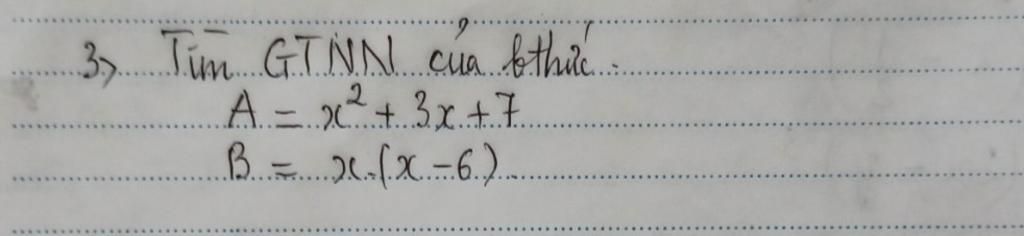 3> Tìm GTNN của bthức.
A = x² + 3x + 7
B = x.(x - 6)